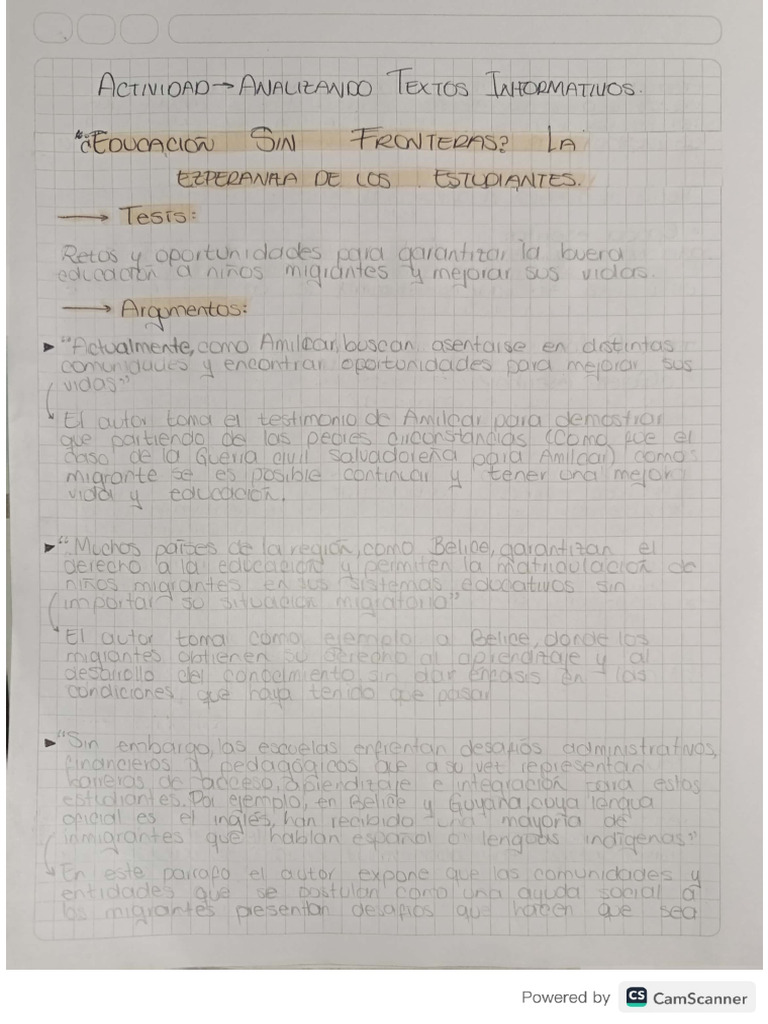 ACTIVIDAD → ANALIZANDO TEXTOS INFORMATIVOS.
"¿EDUCACIÓN SIN FRONTERAS? LA
EZPERANZA DE LOS ESTUDIANTES.
→ Tesis:
Retos y oportunidades para garantizar la buena
educación a niños migrantes y mejorar sus vidas.
→ Argumentos:
▸ "Actualmente, como Amilcar, buscan asentarse en distintas
comunidades y encontrar oportunidades para mejorar sus
vidas"
El autor toma el testimonio de Amilcar para demostrar
que partiendo de las peores circonstancias (Como fue el
caso de la Guerra civil Salvadoreña para Amilcar) como
migrante se es posible continuar y tener una mejor
vida y educación.
▸ "Muchos países de la region, como Belice, garantizan el
derecho a la educación y permiten la matriculación de
niños migrantes en sus sistemas educativos sin
importar su situación migratoria"
El autor toma como ejemplo a Belice, donde los
migrantes obtienen su derecho al aprendizaje y al
desarrollo del conocimiento sin dar énfasis en las
condiciones que haya tenido que pasar
▸ "Sin embargo, las escuelas enfrentan desafíos administrativos,
financieros y pedagógicos que a su vez representan
barreras de acceso, aprendizaje e integración para estos
estudiantes. Por ejemplo, en Belice y Guyana, cuya lengua
oficial es el inglés, han recibido una mayoria de
inmigrantes que hablan español o lenguas indígenas"
En este parrafo el autor expone que las comunidades y
entidades que se postulan como una ayuda social a
los migrantes presentan desafios que hacen que sea
Powered by CS CamScanner